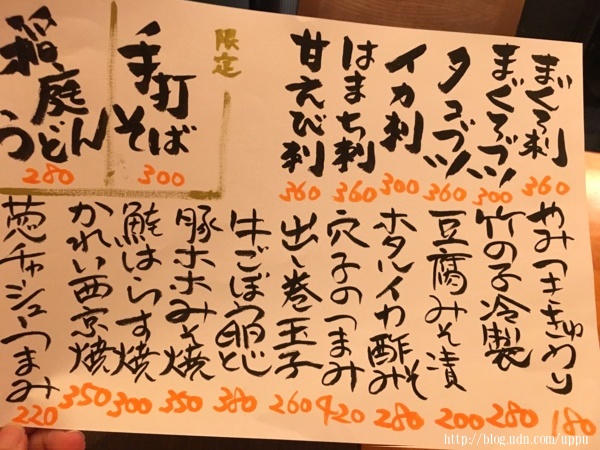 まぐろ刺 360
まぐろブツ 300
タコブツ 360
イカ刺 300
はまち刺 360
甘えび刺 360
限定
手打そば 300
稲庭うどん 280
やみつききゅうり 180
竹の子冷製 280
豆腐みそ漬 200
ホタルイカ酢みそ 280
穴子のつまみ 420
出し巻玉子 260
牛ごぼう卵とじ 380
豚ホホみそ焼 350
鮭はらす焼 300
かれい西京焼 350
葱チャーシューつまみ 220
http://blog.udn.com/uppu